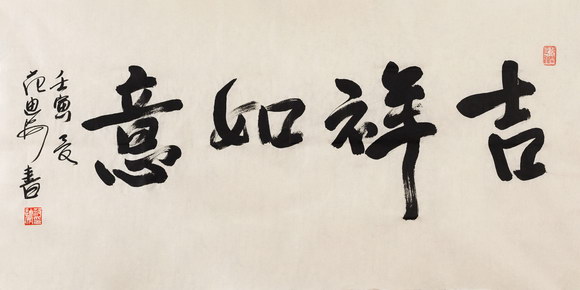 吉祥如意
壬寅夏
范迪安书